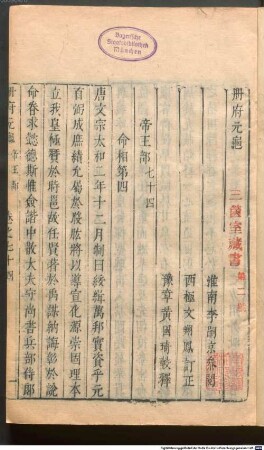 Bayerische
Staatsbibliothek
München
冊府元龜
三酉室藏書
淮南李嗣京參閱
西極文翔鳳訂正
豫章黃國琦較釋
帝王部七十四
命相第四
唐文宗太和二年十二月制曰緝綏萬邦實資乎元
百弼成庶績允屬於股肱將以導宣化源崇固理本
立我皇極賢於時邕故任賢於彝謨納誨彰於說
命眷求懿德斯惟愈諧中散大夫守尚書兵部侍郎
冊府元龜
帝王部
卷之七十四
一